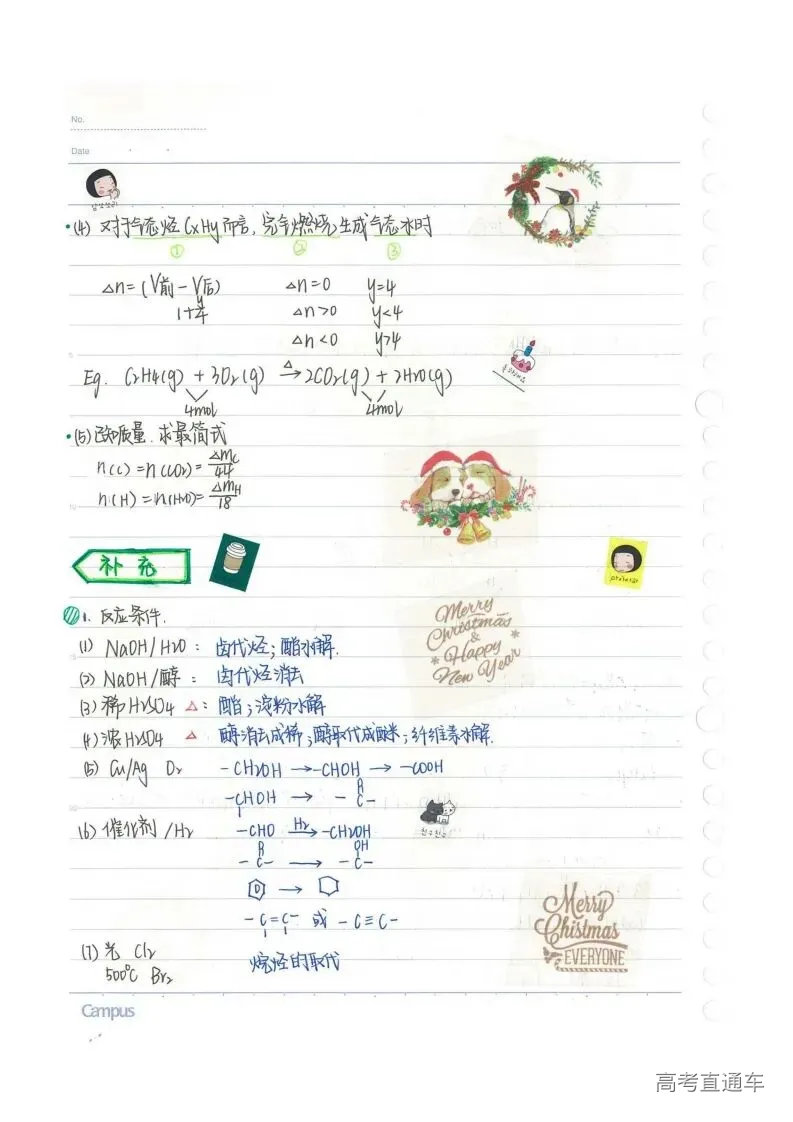 No.
Date
•(4) 对于气态烃 CxHy 而言, 完全燃烧生成气态水时
① ② ③
△n = (V前 - V后) △n = 0 y=4
1+y/4 △n > 0 y<4
△n < 0 y>4
Eg. C2H4(g) + 3O2(g) △→ 2CO2(g) + 2H2O(g)
4mol 4mol
•(5) 已知质量. 求最简式
n(C) = n(CO2) = △mC/44
n(H) = n(H2O) = △mH/18
补充
1. 反应条件.
(1) NaOH/H2O : 卤代烃; 酯水解.
(2) NaOH/醇 : 卤代烃消去
(3) 稀H2SO4 △ : 酯; 淀粉水解
(4) 浓H2SO4 △ 醇消去成烯; 醇取代成醚; 纤维素水解.
(5) Cu/Ag O2 -CH2OH → -CHOH → -COOH
-CHOH → -C-
(6) 催化剂/H2 -CHO H2→ -CH2OH
-C- → -C- OH
→
-C=C- 或 -C≡C-
(7) 光 Cl2 烷烃的取代
500℃ Br2
Merry
Christmas
&
Happy
New Year
Merry
Chistmas
EVERYONE
Campus
高考直通车